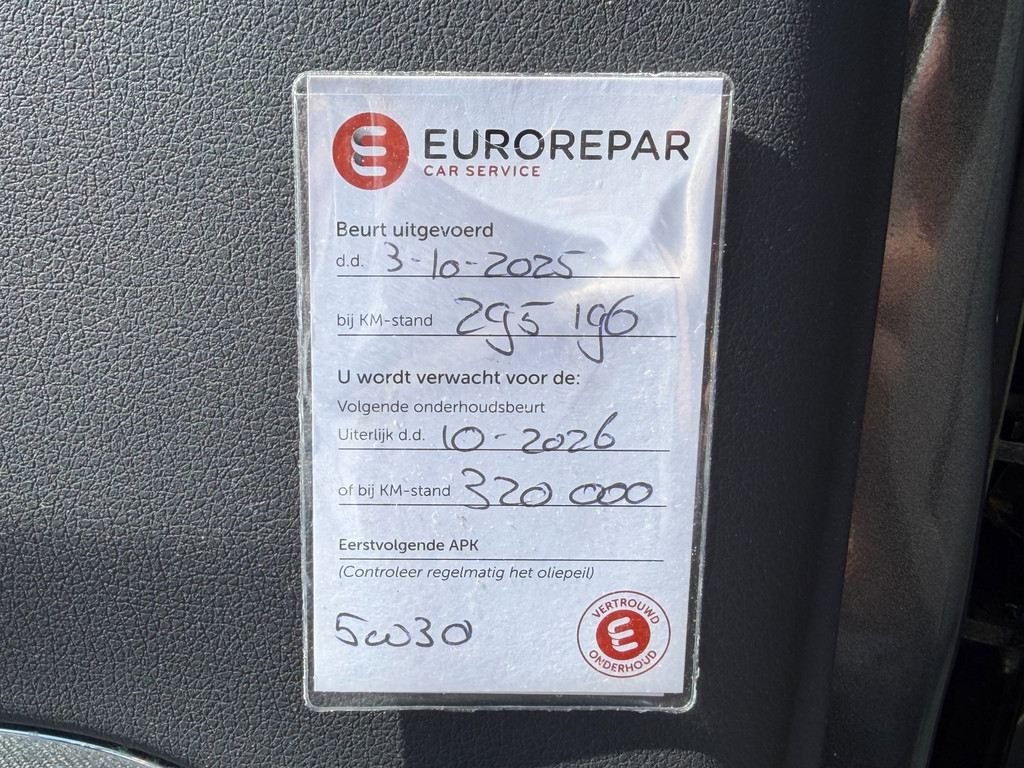 EUROREPAR
CAR SERVICE
Beurt uitgevoerd
d.d. 3-10-2025
bij KM-stand 295 196
U wordt verwacht voor de:
Volgende onderhoudsbeurt
Uiterlijk d.d. 10-2026
of bij KM-stand 320 000
Eerstvolgende APK
(Controleer regelmatig het oliepeil)
5w30
VERTROUWD
ONDERHOUD